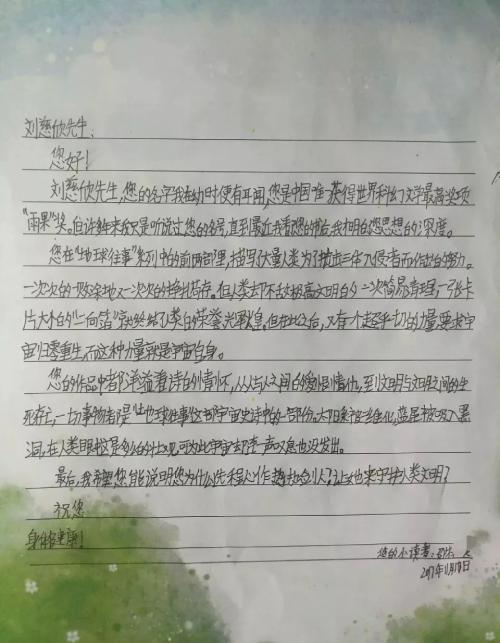 刘慈欣先生:
您好!
刘慈欣先生,您的名字我在幼时便有耳闻,您是中国唯一获得世界科幻文学最高奖项
"雨果"奖。但许多年来我只是听说过您的名号,直到最近我看您的书后,我才明白您思想的深度。
您在"地球往事"系列中的前两部里,描写了大量人类为了抗击三体入侵者而作出的努力。
一次次的一败涂地又一次次的牺牲。但人类却不敌极高文明的一次简易清理,一张卡
片大小的"二向箔"宣判了人类的荣誉光辉。但在此之后,又有一个超乎一切的力量要求宇
宙归零重生,而这种力量就是宇宙自身。
您的作品中都洋溢着诗的情怀,从人与人之间的爱恨情仇,到文明与文明之间的生
死存亡,一切事物都是"地球往事"这部宇宙史诗中的一部份。太阳系被二维化,蓝星被吸入黑
洞,在人类眼中这是多么的壮观,可为此宇宙却连一声叹息也没发出。
最后,我希望您能说明您为什么选程心作执剑人?让她来守护人类文明?
祝您
身体健康!
您的小读者:
2017年11月19日